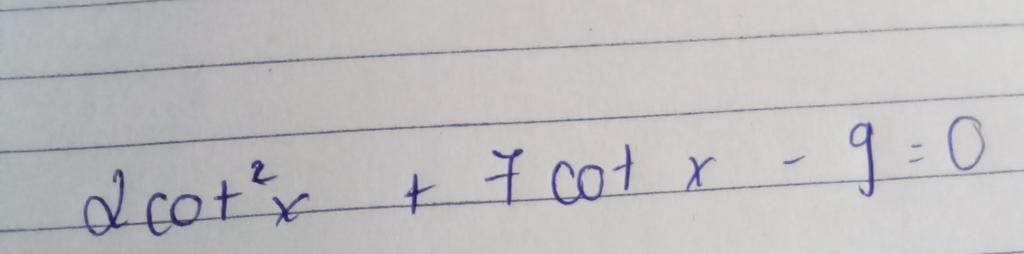 2cot²x + 7cot x - 9 = 0